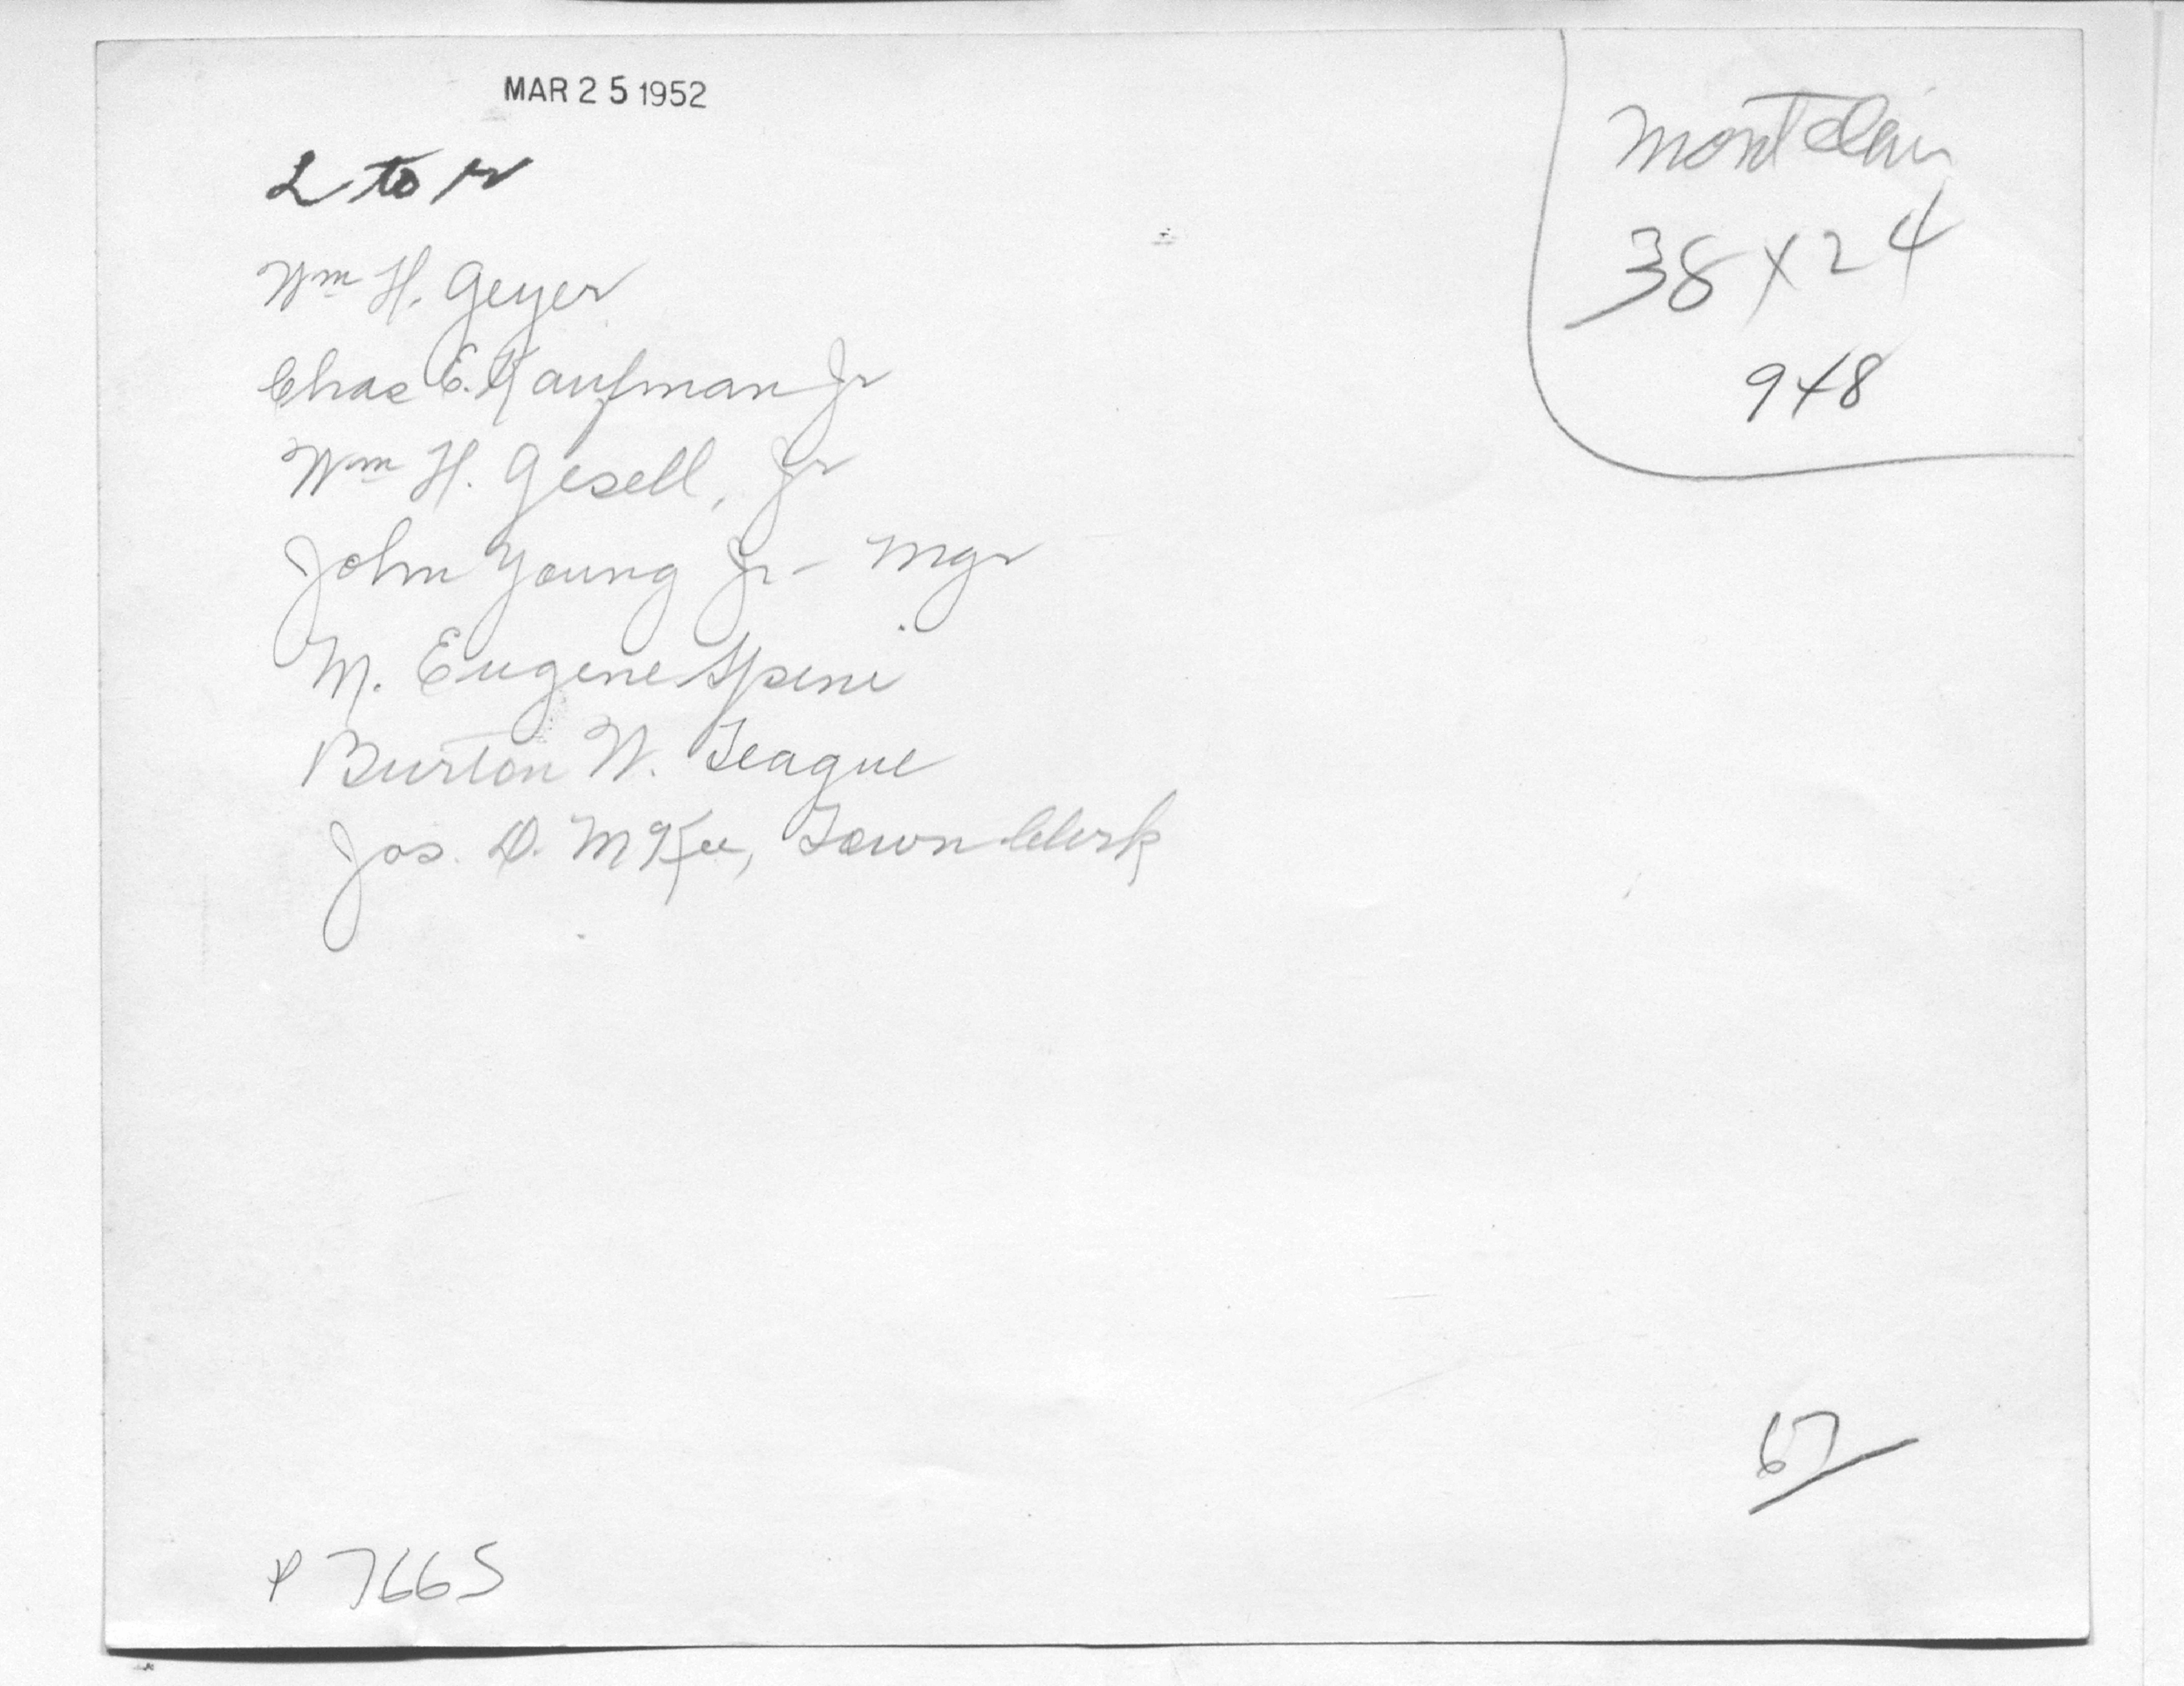 MAR 25 1952
L to r
Wm H. Geyer
Chas E. Kaufman Jr
Wm H. Gesell, Jr
John Young Jr - Mgr
M. Eugene
Burton W. Teague
Jos. D. McKee, Town Clerk
Montclair
38 x 24
9x8
67
P 7665